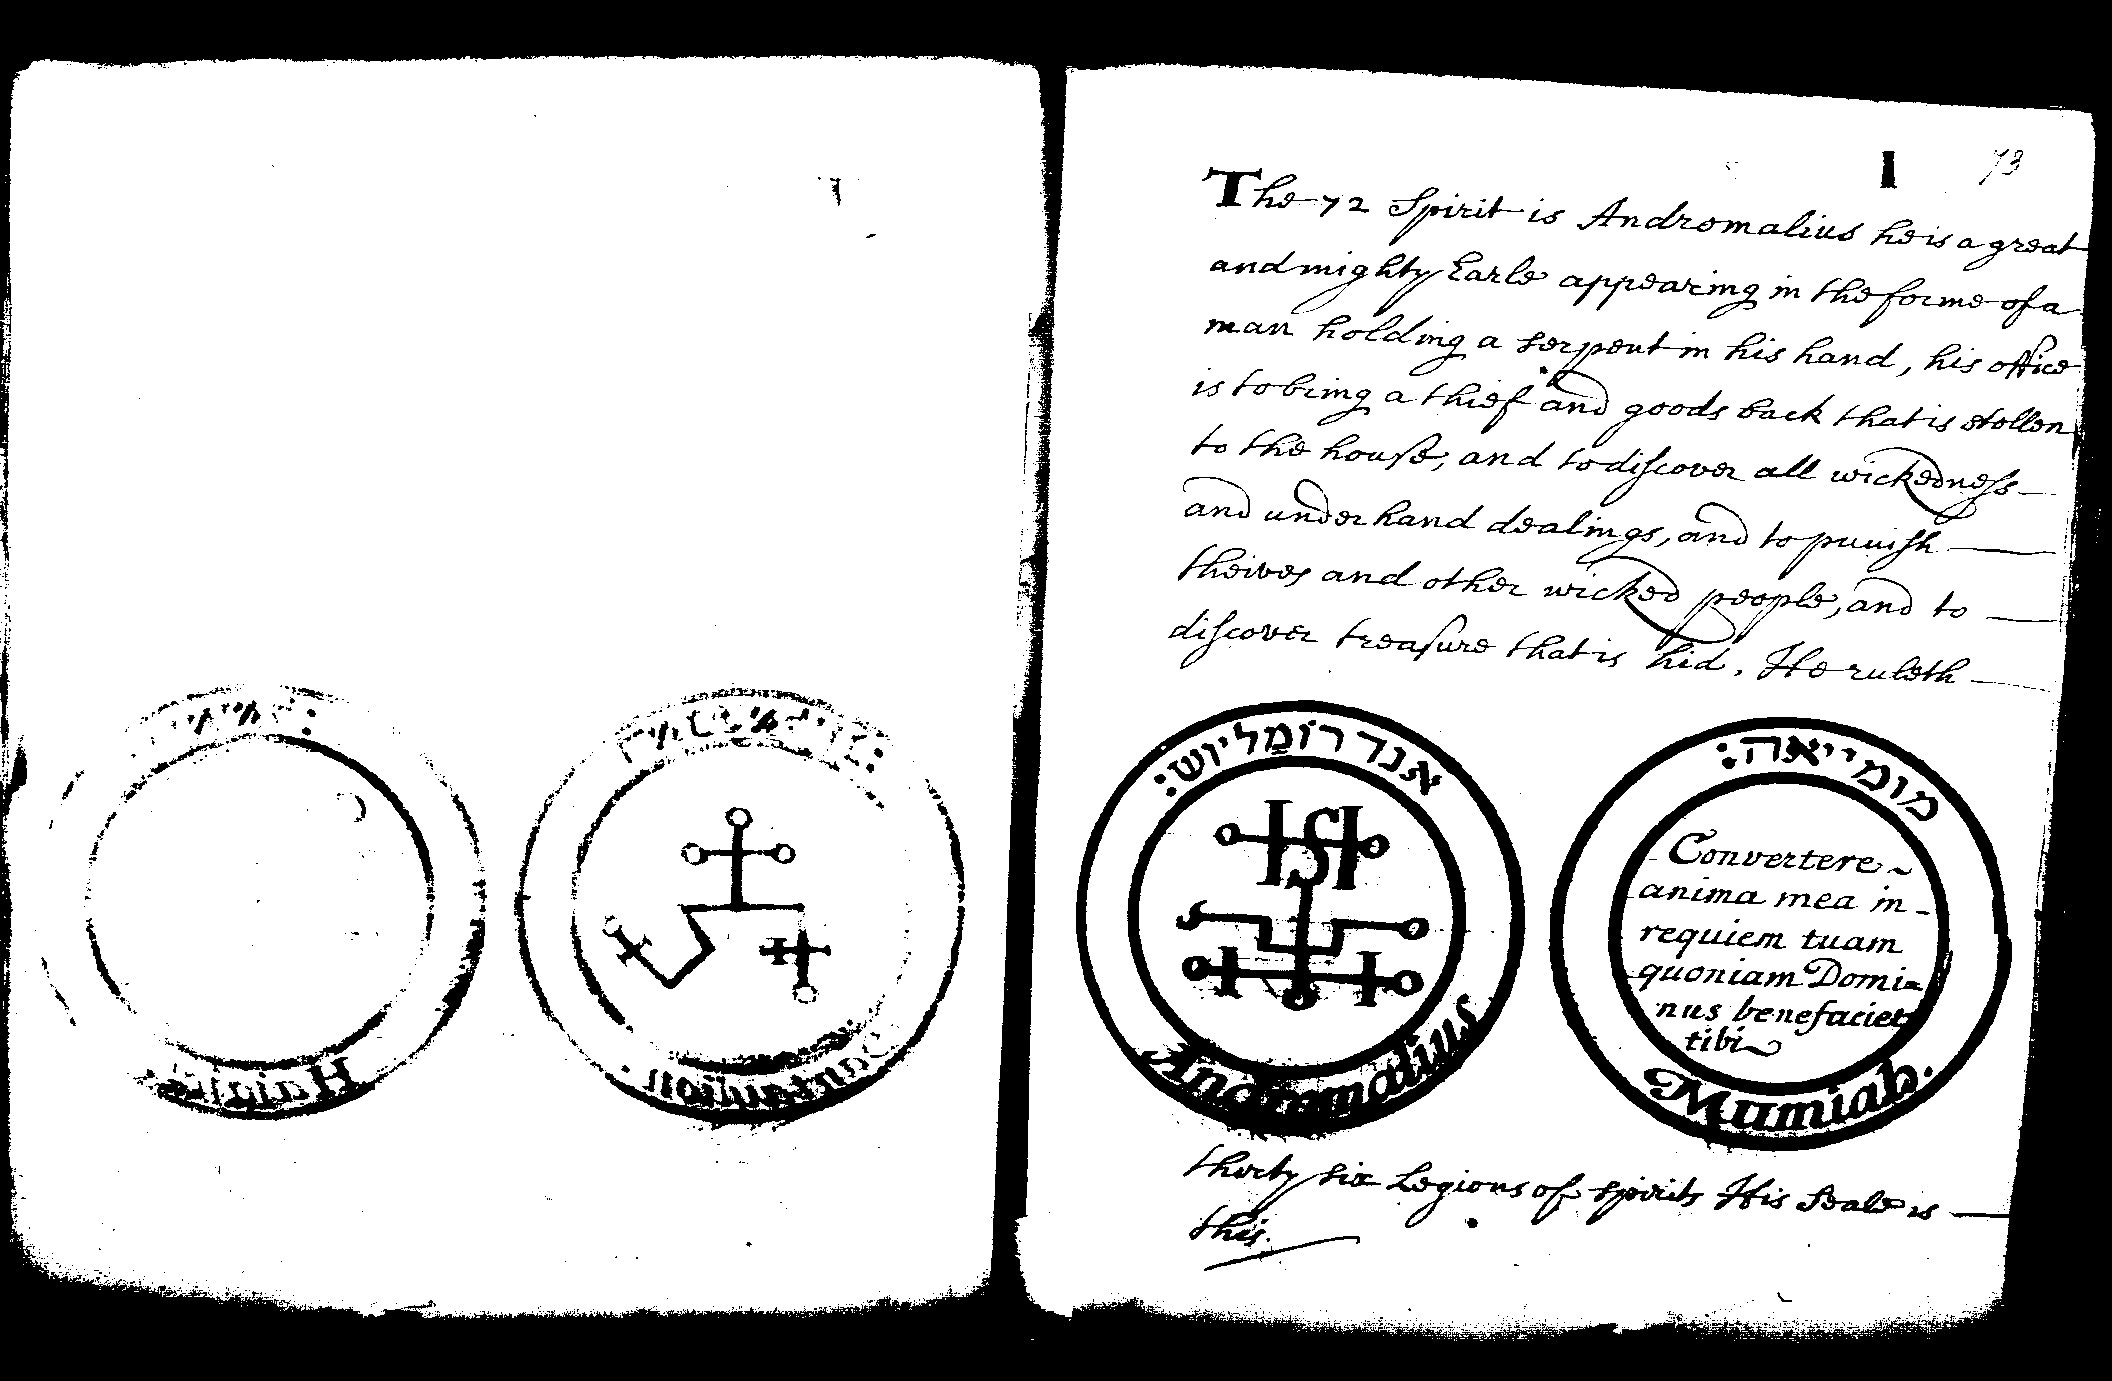 73
The 72 Spirit is Andromalius he is a great
and mighty Earle appearing in the forme of a
man holding a serpent in his hand, his office
is to bring a thief and goods back that is stollen
to the house, and to discover all wickedness
and underhand dealings, and to punish
theives and other wicked people, and to
discover treasure that is hid. He ruleth
אנדרומליוש:
Andromalius
מומייאה:
Convertere
anima mea in
requiem tuam
quoniam Domi-
nus benefaciet
tibi
Mumiah.
thirty six Legions of spirits His Seale is
this.